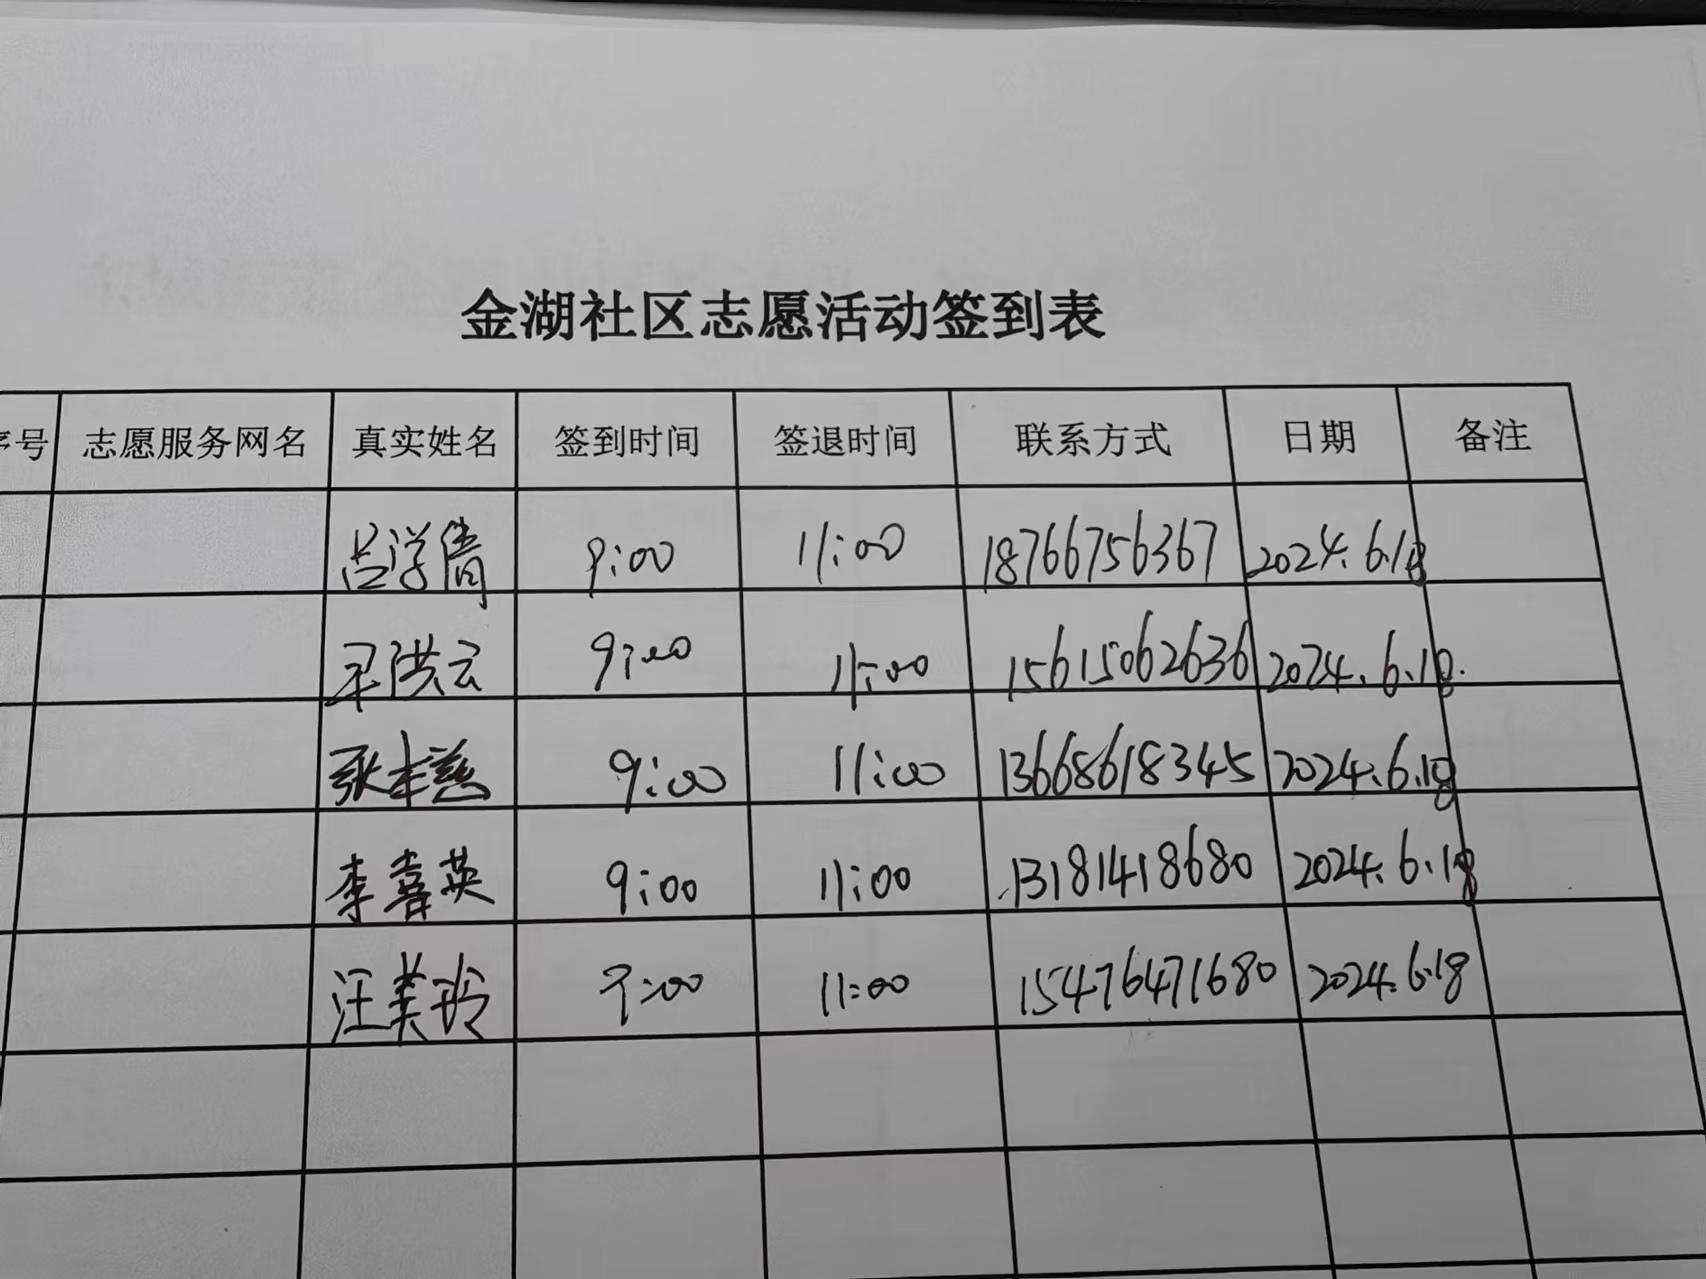 金湖社区志愿活动签到表
序号 志愿服务网名 真实姓名 签到时间 签退时间 联系方式 日期 备注
吕学倩 9:00 11:00 18766756367 2024.6.18
洪云 9:00 11:00 15615062636 2024.6.18.
张丰慈 9:00 11:00 13668618345 2024.6.18
李喜英 9:00 11:00 13181418680 2024.6.18
汪美玲 9:00 11:00 15476471680 2024.6.18